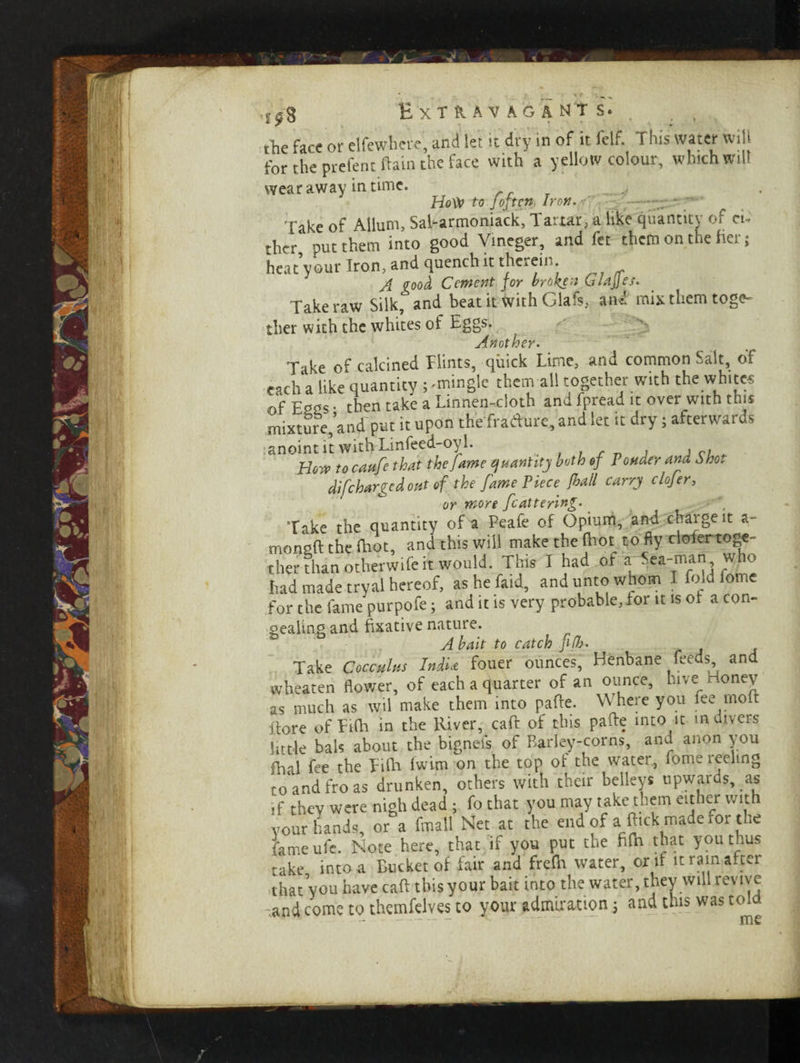 198 EXTRAVAGANTS.
the face or elſewhere, and let it dry in of it ſelf. This water will
for the preſent ſtain the face with a yellow colour, which will
wear away in time.
How to ſoften Iron.
Take of Allum, Sal-armoniack, Tartar, a like quantity of ei-
ther, put them into good Vineger, and ſet them on the fier;
heat your Iron, and quench it therein.
A good Cement for broken Glaſſes.
Take raw Silk, and beat it with Glaſs, and mix them toge-
ther with the whites of Eggs.
Another.
Take of calcined Flints, quick Lime, and common Salt, of
each a like quantity; mingle them all together with the whites
of Eggs; then take a Linnen-cloth and ſpread it over with this
mixture, and put it upon the fracture, and let it dry; afterwards
anoint it with Linſeed-oyl.
How to cauſe that the ſame quantity both of Pouder and Shot
diſcharged out of the ſame Piece ſhall carry cloſer,
or more ſcattering.
Take the quantity of a Peaſe of Opium, and charge it a-
mongſt the ſhot, and this will make the ſhot to fly cloſer toge-
ther than otherwiſe it would. This I had of a Sea-man, who
had made tryal hereof, as he ſaid, and unto whom I ſold ſome
for the ſame purpoſe; and it is very probable, for it is of a con-
gealing and fixative nature.
A bait to catch fiſh.
Take Cocculus Indiæ fouer ounces, Henbane ſeeds, and
wheaten flower, of each a quarter of an ounce, hive Honey
as much as wil make them into paſte. Where you ſee moſt
ſtore of Fiſh in the River, caſt of this paſte into it in divers
little bals about the bigneſs of Barley-corns, and anon you
ſhal ſee the Fiſh ſwim on the top of the water, ſome reeling
to and fro as drunken, others with their belleys upwards, as
if they were nigh dead; ſo that you may take them either with
your hands, or a ſmall Net at the end of a ſtick made for the
ſame uſe. Note here, that if you put the fiſh that you thus
take, into a Bucket of fair and freſh water, or if it rain after
that you have caſt this your bait into the water, they will revive
and come to themſelves to your admiration; and this was told
me